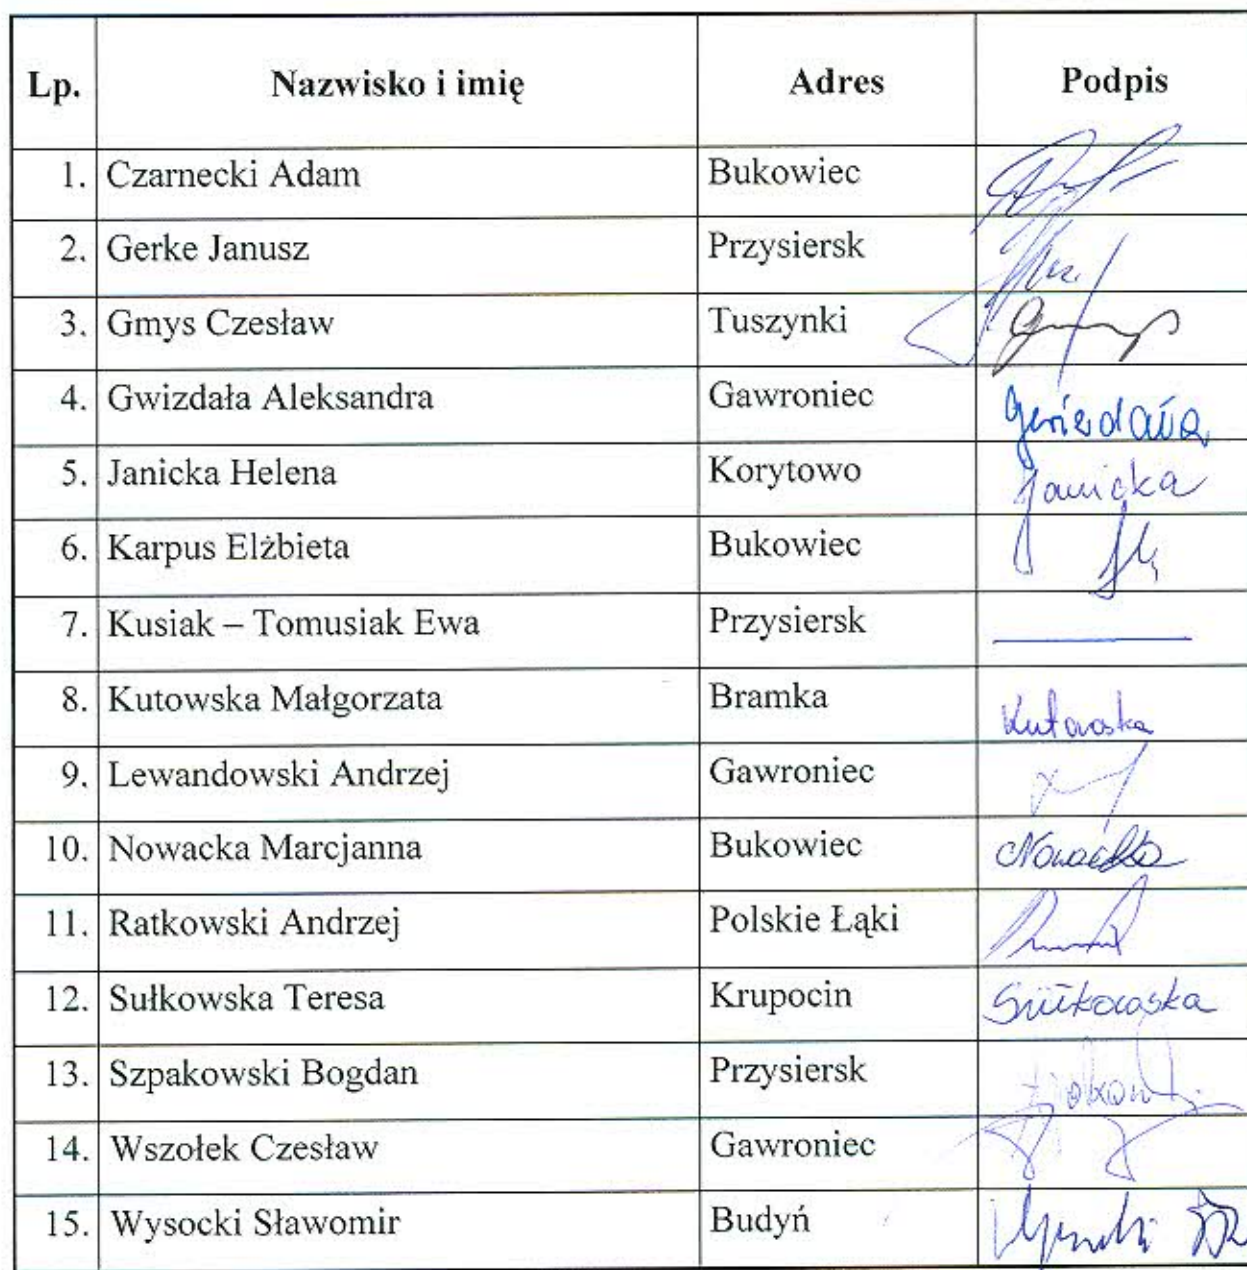 Lp. Nazwisko i imię Adres Podpis
1. Czarnecki Adam Bukowiec
2. Gerke Janusz Przysiersk
3. Gmys Czesław Tuszynki
4. Gwizdała Aleksandra Gawroniec Gwizdała
5. Janicka Helena Korytowo Janicka
6. Karpus Elżbieta Bukowiec
7. Kusiak – Tomusiak Ewa Przysiersk
8. Kutowska Małgorzata Bramka Kutowska
9. Lewandowski Andrzej Gawroniec
10. Nowacka Marcjanna Bukowiec Nowacka
11. Ratkowski Andrzej Polskie Łąki
12. Sułkowska Teresa Krupocin Sułkowska
13. Szpakowski Bogdan Przysiersk
14. Wszołek Czesław Gawroniec
15. Wysocki Sławomir Budyń